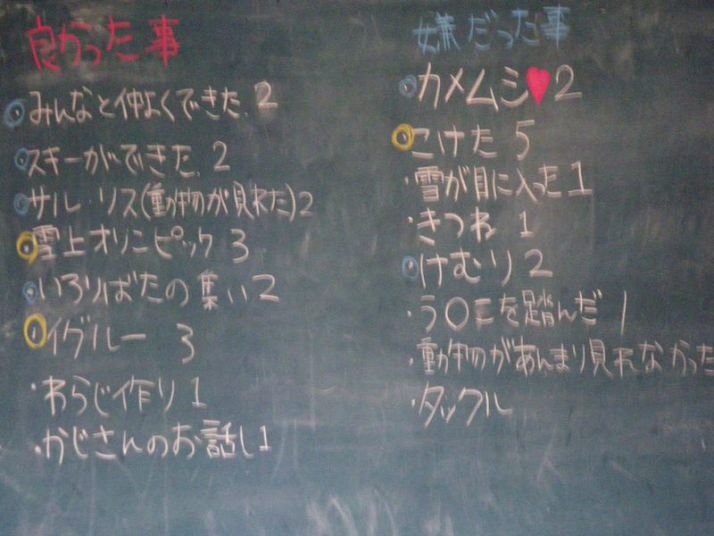 良かった事
・みんなと仲よくできた 2
・スキーができた 2
・サル リス(動物が見れた)2
・雪上オリンピック 3
・いろりばたの集い 2
・イグルー 3
・わらじ作り 1
・かじさんのお話し 1
嫌だった事
・カメムシ♥2
・こけた 5
・雪が目に入った 1
・きつね 1
・けむり 2
・う○こを踏んだ 1
・動物があんまり見れなかった
・タックル